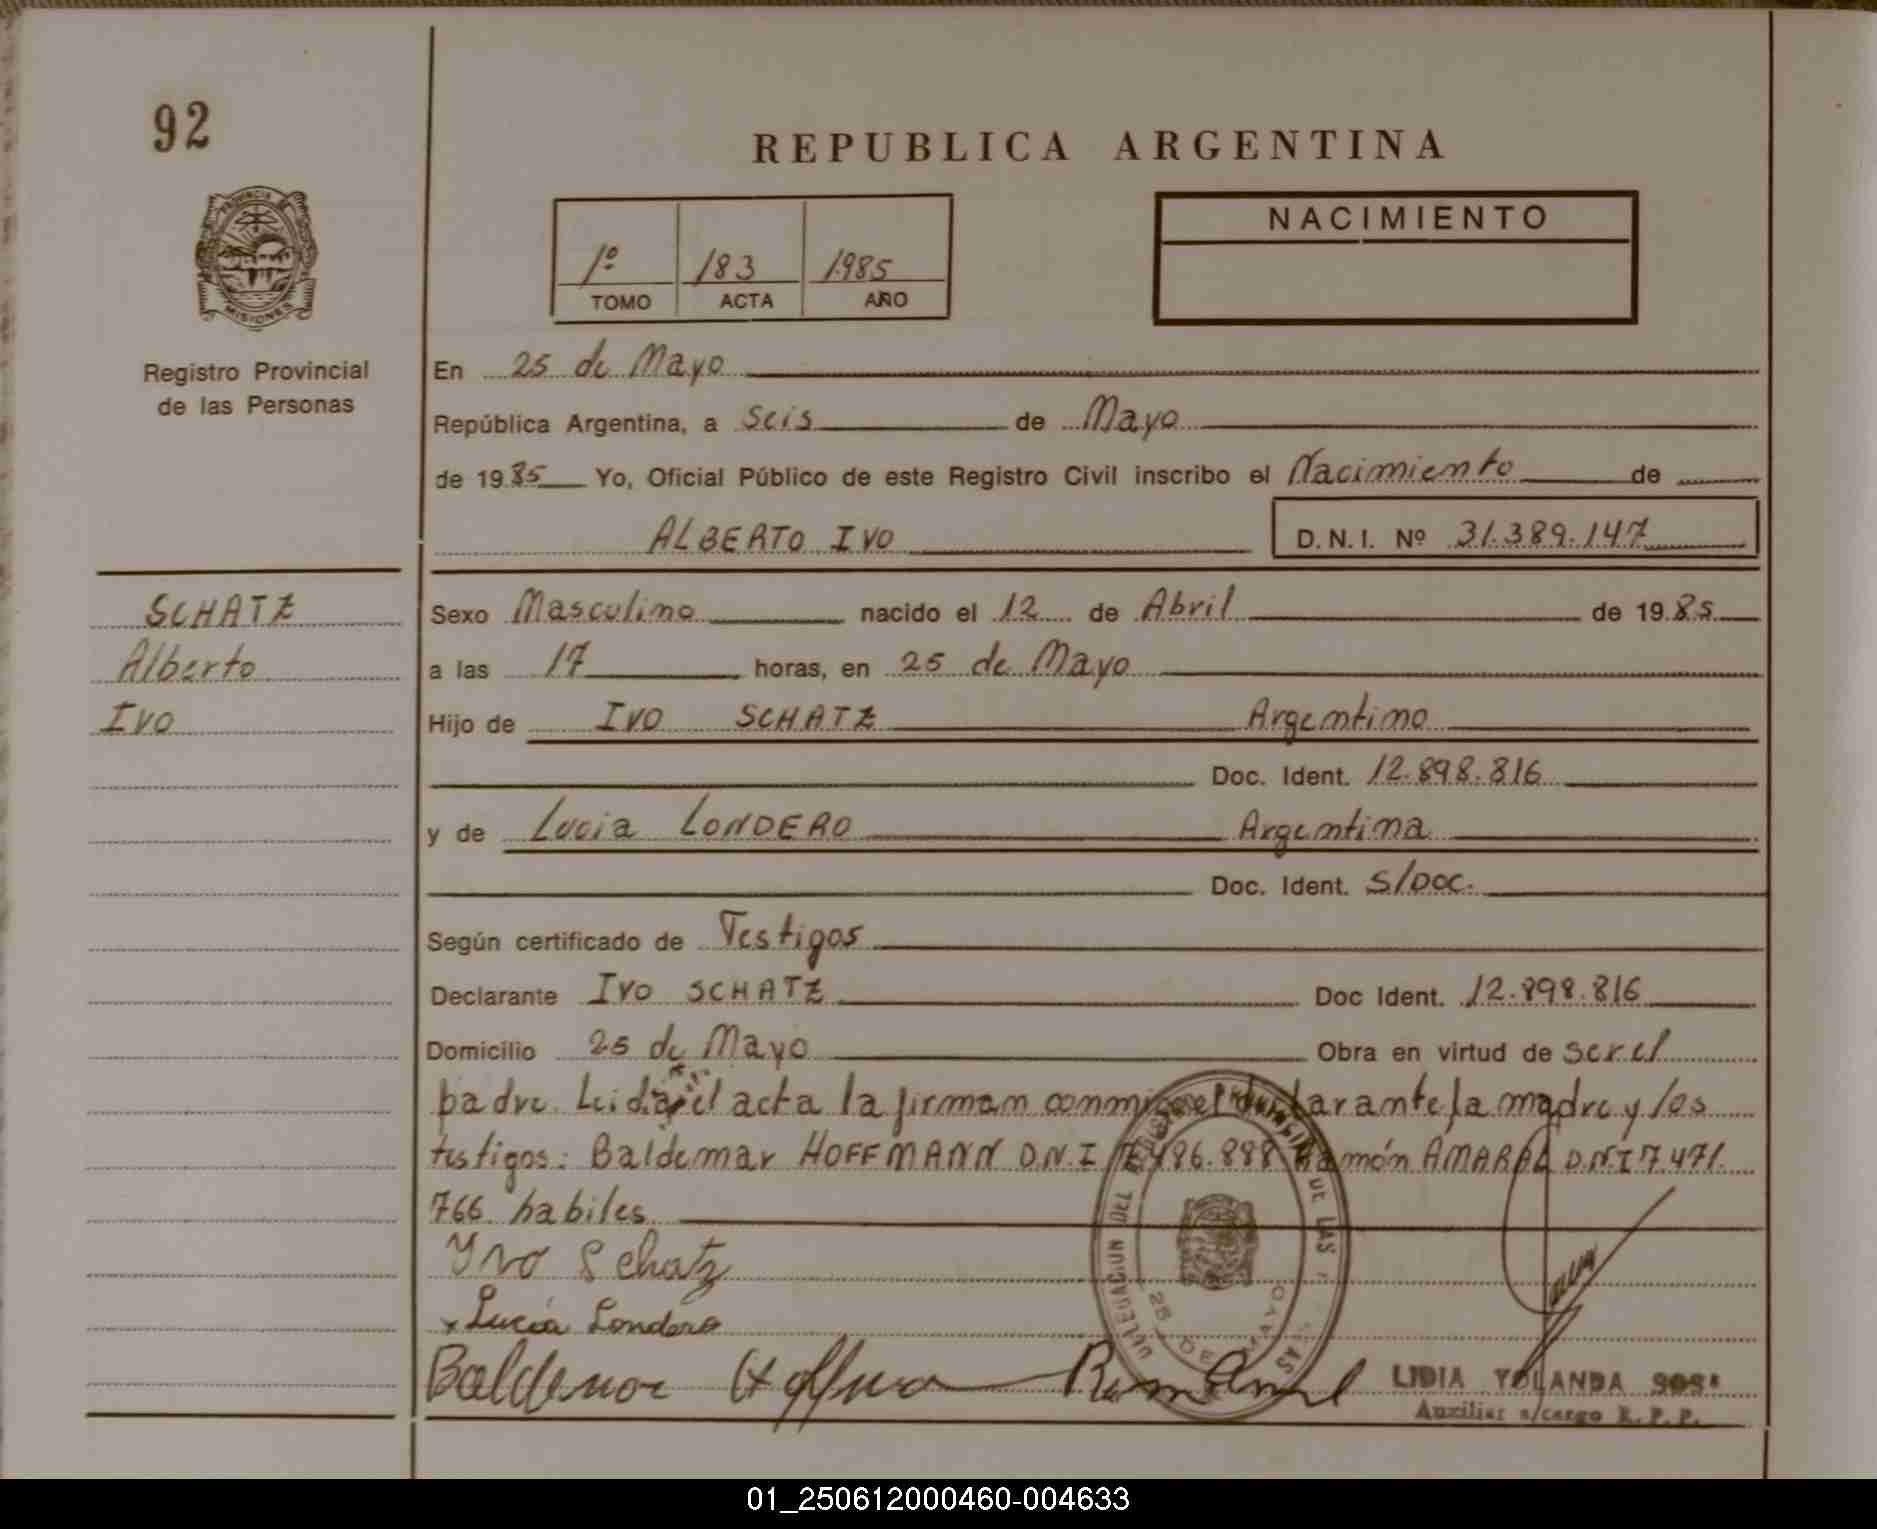 92
REPUBLICA ARGENTINA
PROVINCIA DE MISIONES
Registro Provincial
de las Personas
1º 183 1985
TOMO ACTA AÑO
NACIMIENTO
En 25 de Mayo
República Argentina, a Seis de Mayo
de 1985 Yo, Oficial Público de este Registro Civil inscribo el Nacimiento de
ALBERTO IVO D.N.I. Nº 31.389.147
SCHATZ
Alberto
Ivo
Sexo Masculino nacido el 12 de Abril de 1985
a las 17 horas, en 25 de Mayo
Hijo de Ivo SCHATZ Argentino
Doc. Ident. 12.898.816
y de Lucia LONDERO Argentina
Doc. Ident. S/DOC.
Según certificado de Testigos
Declarante Ivo SCHATZ Doc Ident. 12.898.816
Domicilio 25 de Mayo Obra en virtud de ser el
padre. Leida el acta la firman conmigo el declarante, la madre y los
testigos: Baldemar HOFFMANN D.N.I 486.888 Ramón AMARAL D.N.I 7.471.
766 habiles
Yvo Schatz
x Lucia Londero
DELEGACION DEL REGISTRO PROVINCIAL DE LAS
25 DE MAYO
LIDIA YOLANDA SOSA
Auxiliar s/cargo R. P. P.
01_250612000460-004633